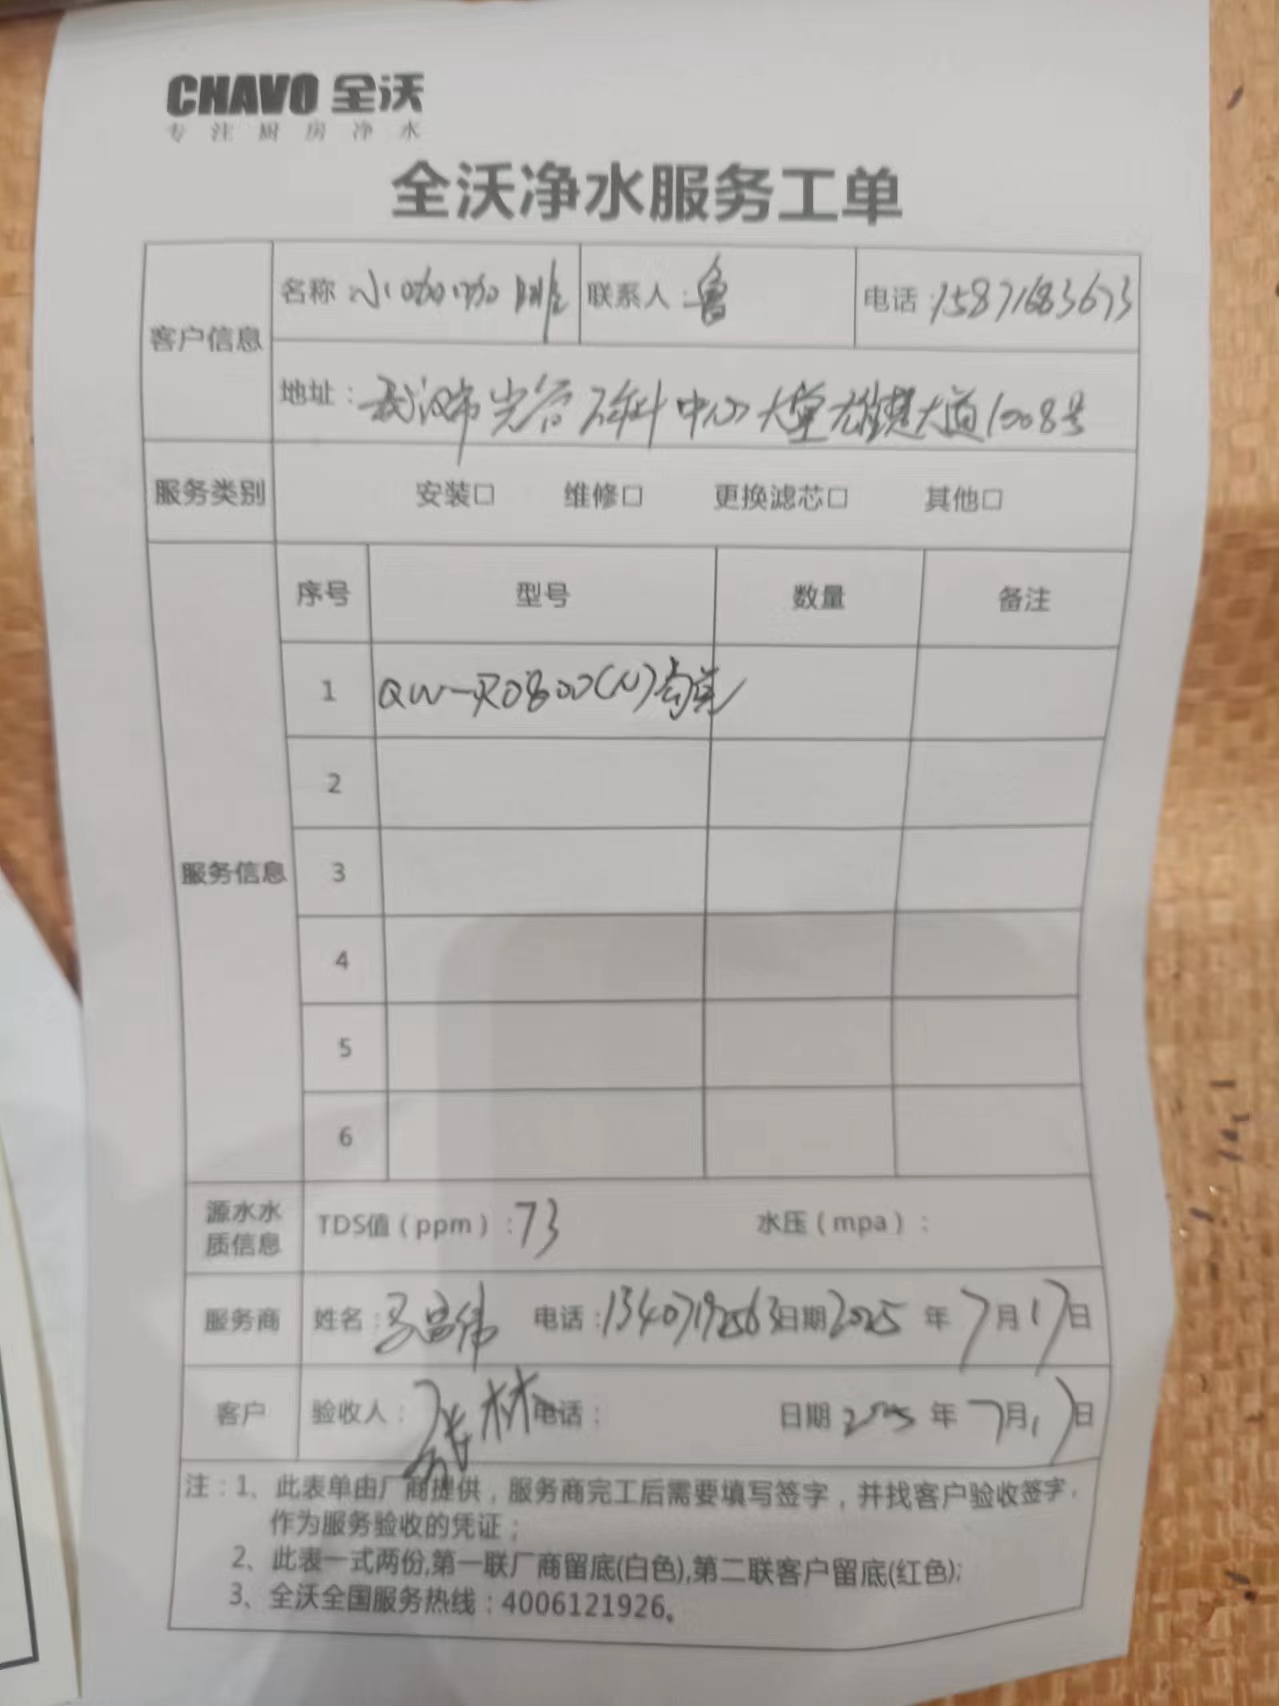 CHAVO 全沃
专注厨房净水
全沃净水服务工单
客户信息
名称 小咖咖啡 联系人：鲁 电话：15871683673
地址：武汉市光谷 中心大 大道1008号
服务类别 安装□ 维修□ 更换滤芯□ 其他□
服务信息
序号 型号 数量 备注
1 QW-RO800(N)
2
3
4
5
6
源水水质信息 TDS值（ppm）：73 水压（mpa）：
服务商 姓名： 电话：13407192563 日期 2025 年 7月17日
客户 验收人：张林 电话： 日期 2025 年 7月17日
注：1、此表单由厂商提供，服务商完工后需要填写签字，并找客户验收签字，
作为服务验收的凭证；
2、此表一式两份,第一联厂商留底(白色),第二联客户留底(红色);
3、全沃全国服务热线：4006121926。